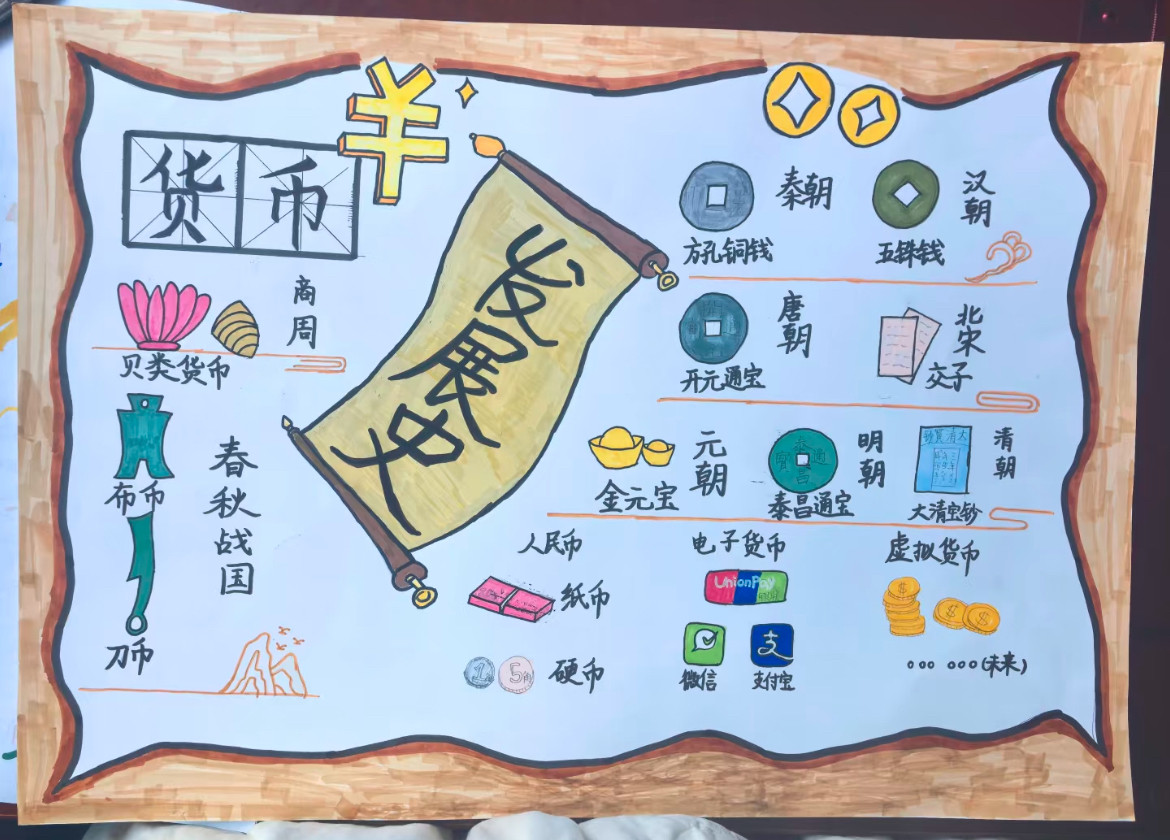 货币
发展史
商周
贝类货币
布币
春秋战国
刀币
秦朝
方孔铜钱
汉朝
五铢钱
唐朝
开元通宝
北宋
交子
元朝
金元宝
明朝
泰昌通宝
清朝
大清宝钞
人民币
纸币
1
5
硬币
电子货币
UnionPay
微信
支
支付宝
虚拟货币
$
$
$
... ...(未来)